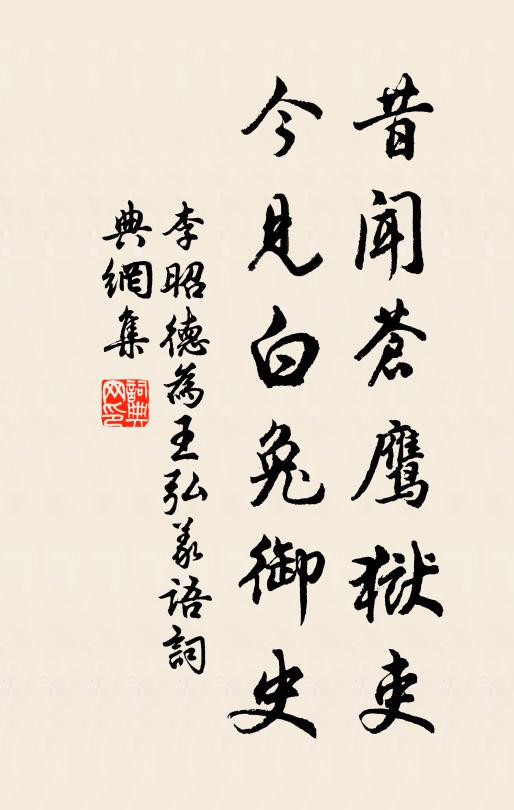 昔聞蒼鷹獄吏
今見白兔御史
李昭德為王弘義語詞
典網集
詞典
网印